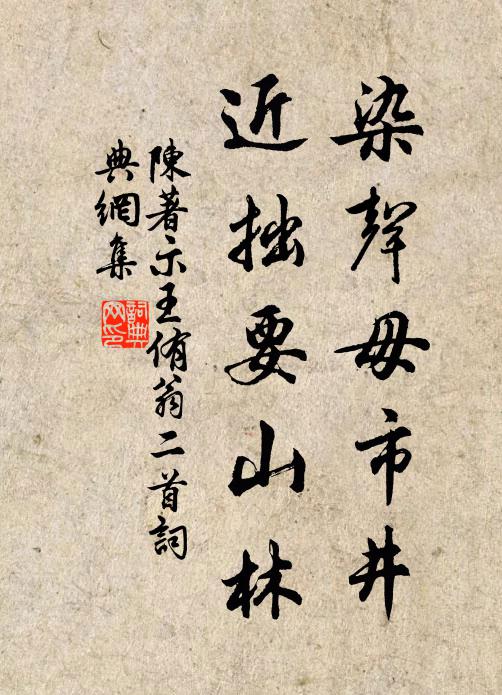 染聲毋市井
近拙要山林
陳著示王侑翁二首詞
典網集
詞典
网印